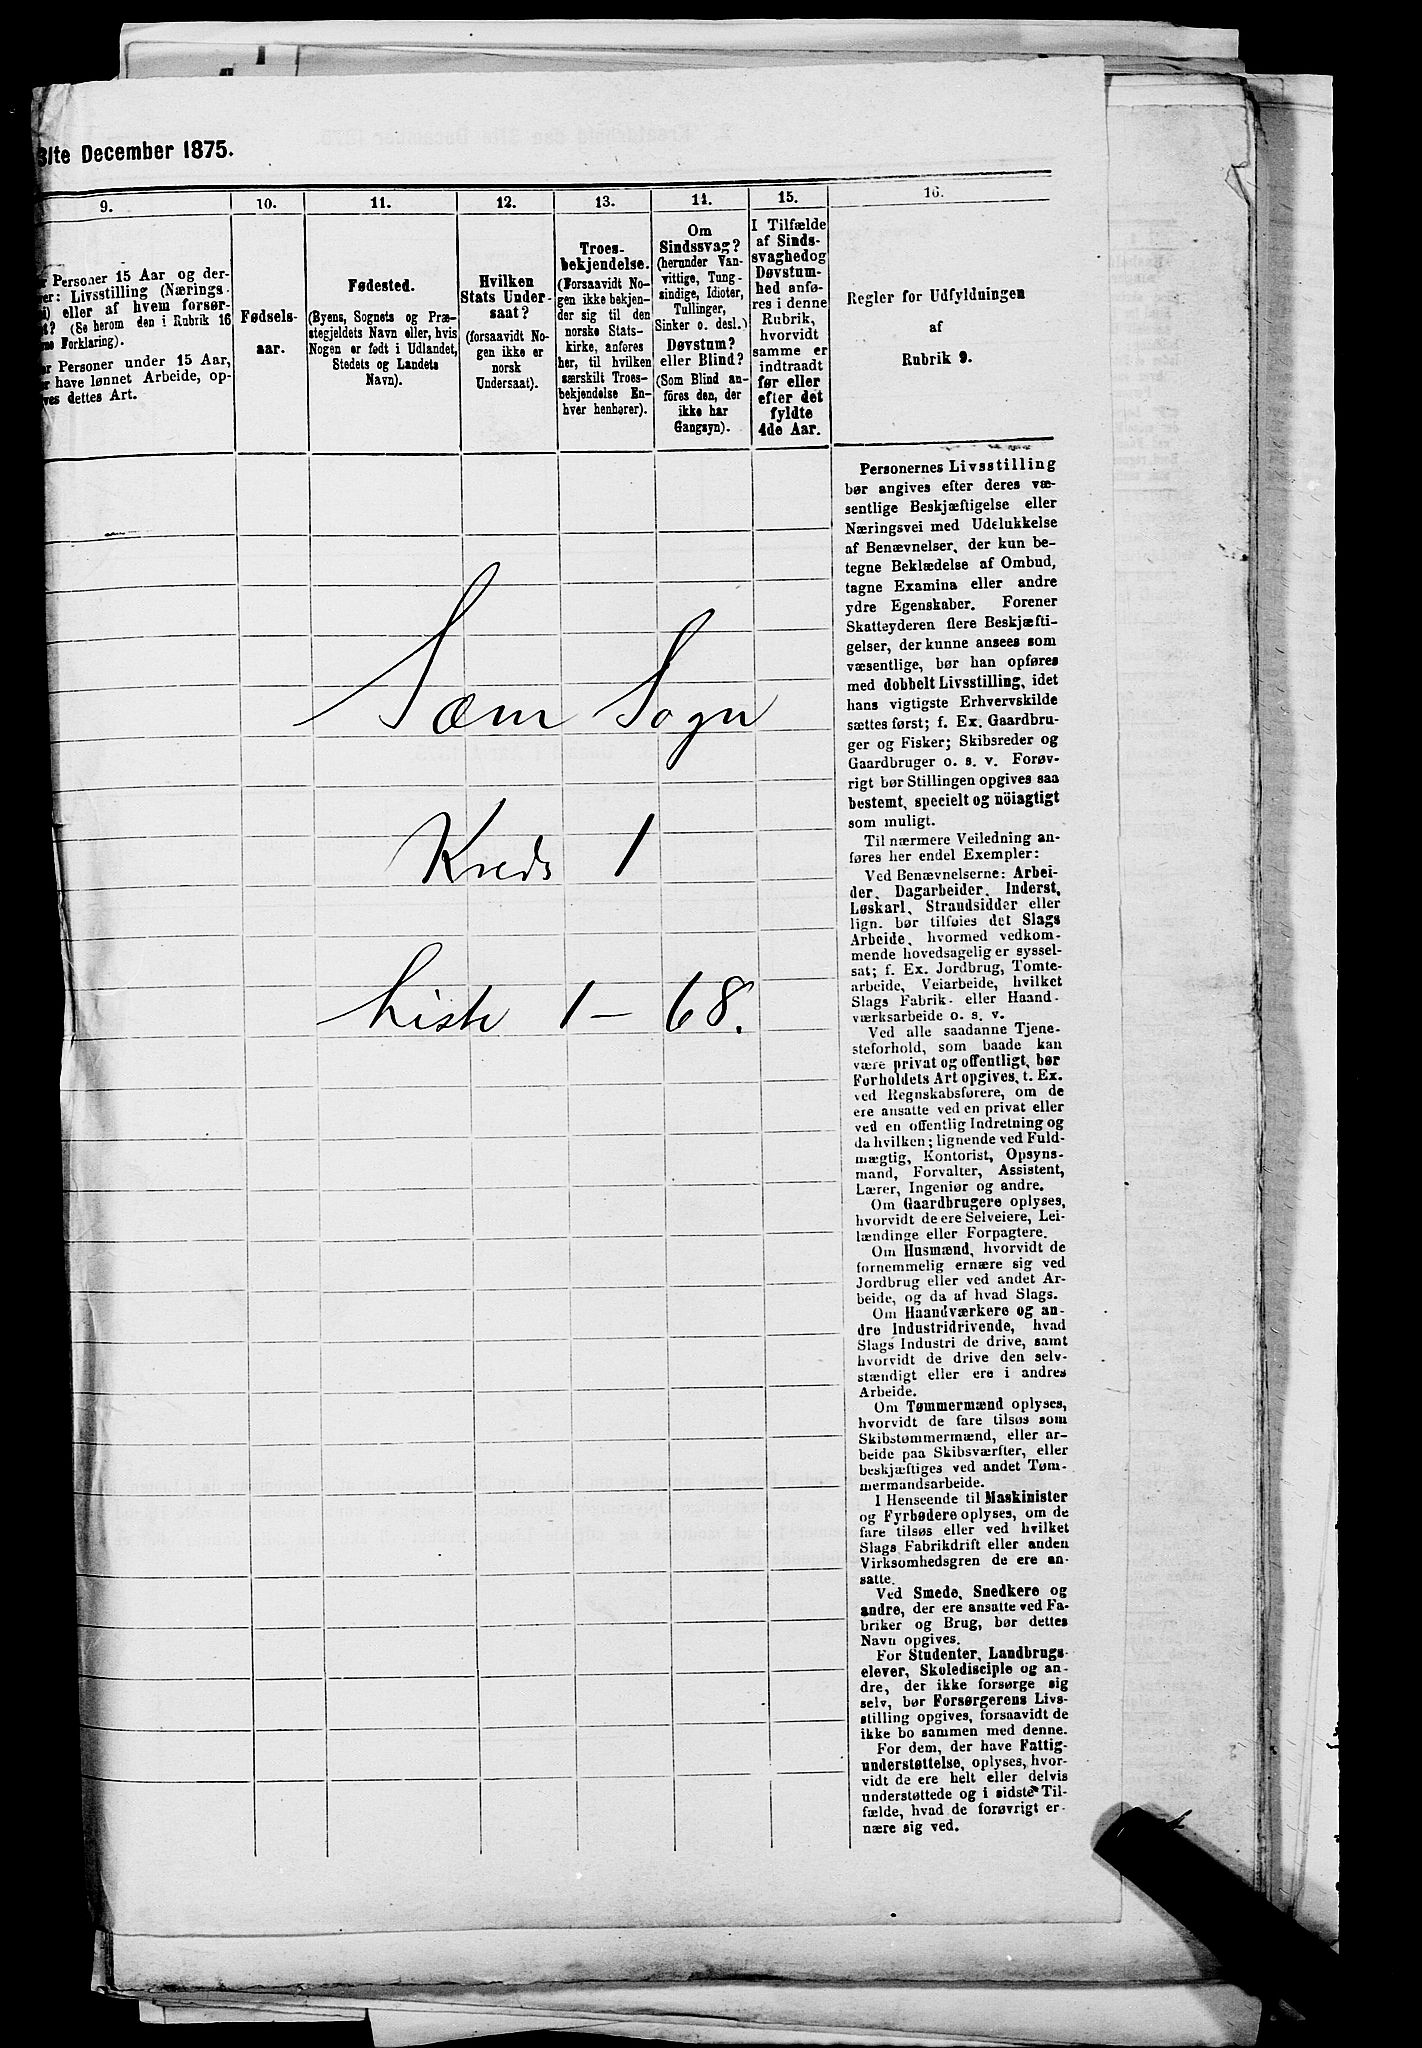 31te December 1875.
9.
Personer 15 Aar og der-
Livsstilling (Nærings-
eller af hvem forsør-
(Se herom den i Rubrik 16
Forklaring).
Personer under 15 Aar,
have lønnet Arbeide, op-
dettes Art.
10.
Fødsels-
aar.
11.
Fødested.
(Byens, Sognets og Præ-
stegjeldets Navn eller, hvis
Nogen er født i Udlandet,
Stedets og Landets
Navn).
12.
Hvilken
Stats Under-
saat?
(forsaavidt No-
gen ikke er
norsk
Undersaat).
13.
Troes-
bekjendelse.
(Forsaavidt No-
gen ikke bekjen-
der sig til den
norske Stats-
kirke, anføres
her, til hvilken
særskilt Troes-
bekjendelse En-
hver henhører).
14.
Om
Sindssvag?
(herunder Van-
vittige, Tung-
sindige, Idioter,
Tullinger,
Sinker o. desl.)
Døvstum?
eller Blind?
(Som Blind an-
føres den, der
ikke har
Gangsyn).
15.
I Tilfælde
af Sinds-
svaghed og
Døvstum-
hed anfø-
res i denne
Rubrik,
hvorvidt
samme er
indtraadt
før eller
efter det
fyldte
4de Aar.
16.
Regler for Udfyldningen
af
Rubrik 9.
Personernes Livsstilling
bør angives efter deres væ-
sentlige Beskjæftigelse eller
Næringsvei med Udelukkelse
af Benævnelser, der kun be-
tegne Beklædelse af Ombud,
tagne Examina eller andre
ydre Egenskaber. Forener
Skatteyderen flere Beskjæfti-
gelser, der kunne ansees som
væsentlige, bør han opføres
med dobbelt Livsstilling, idet
hans vigtigste Erhvervskilde
sættes først; f. Ex. Gaardbru-
ger og Fisker; Skibsreder og
Gaardbruger o. s. v. Forøv-
rigt bør Stillingen opgives saa
bestemt, specielt og nöiagtigt
som muligt.
Til nærmere Veiledning an-
føres her endel Exempler:
Ved Benævnelserne: Arbei-
der, Dagarbeider, Inderst,
Løskarl, Strandsidder eller
lign. bør tilføies det Slags
Arbeide, hvormed vedkom-
mende hovedsagelig er syssel-
sat; f. Ex. Jordbrug, Tomte-
arbeide, Veiarbeide, hvilket
Slags Fabrik- eller Haand-
værksarbeide o. s. v.
Ved alle saadanne Tjene-
steforhold, som baade kan
være privat og offentligt, bør
Forholdets Art opgives, t. Ex.
ved Regnskabsførere, om de
ere ansatte ved en privat eller
ved en offentlig Indretning og
da hvilken; lignende ved Fuld-
mægtig, Kontorist, Opsyns-
mand, Forvalter, Assistent,
Lærer, Ingeniør og andre.
Om Gaardbrugere oplyses,
hvorvidt de ere Selveiere, Lei-
lændinge eller Forpagtere.
Om Husmænd, hvorvidt de
fornemmelig ernære sig ved
Jordbrug eller ved andet Ar-
beide, og da af hvad Slags.
Om Haandværkere og an-
dre Industridrivende, hvad
Slags Industri de drive, samt
hvorvidt de drive den selv-
stændigt eller ere i andres
Arbeide.
Om Tømmermænd oplyses,
hvorvidt de fare tilsøs som
Skibstømmermænd, eller ar-
beide paa Skibsværfter, eller
beskjæftiges ved andet Tøm-
mermandsarbeide.
I Henseende til Maskinister
og Fyrbødere oplyses, om de
fare tilsøs eller ved hvilket
Slags Fabrikdrift eller anden
Virksomhedsgren de ere an-
satte.
Ved Smede, Snedkere og
andre, der ere ansatte ved Fa-
briker og Brug, bør dettes
Navn opgives.
For Studenter, Landbrugs-
elever, Skoledisciple og an-
dre, der ikke forsørge sig
selv, bør Forsørgerens Livs-
stilling opgives, forsaavidt de
ikke bo sammen med denne.
For dem, der have Fattig-
understøttelse, oplyses, hvor-
vidt de ere helt eller delvis
understøttede og i sidste Til-
fælde, hvad de forøvrigt er-
nære sig ved.
Sæm Sogn
Kreds 1
Liste 1 – 68.